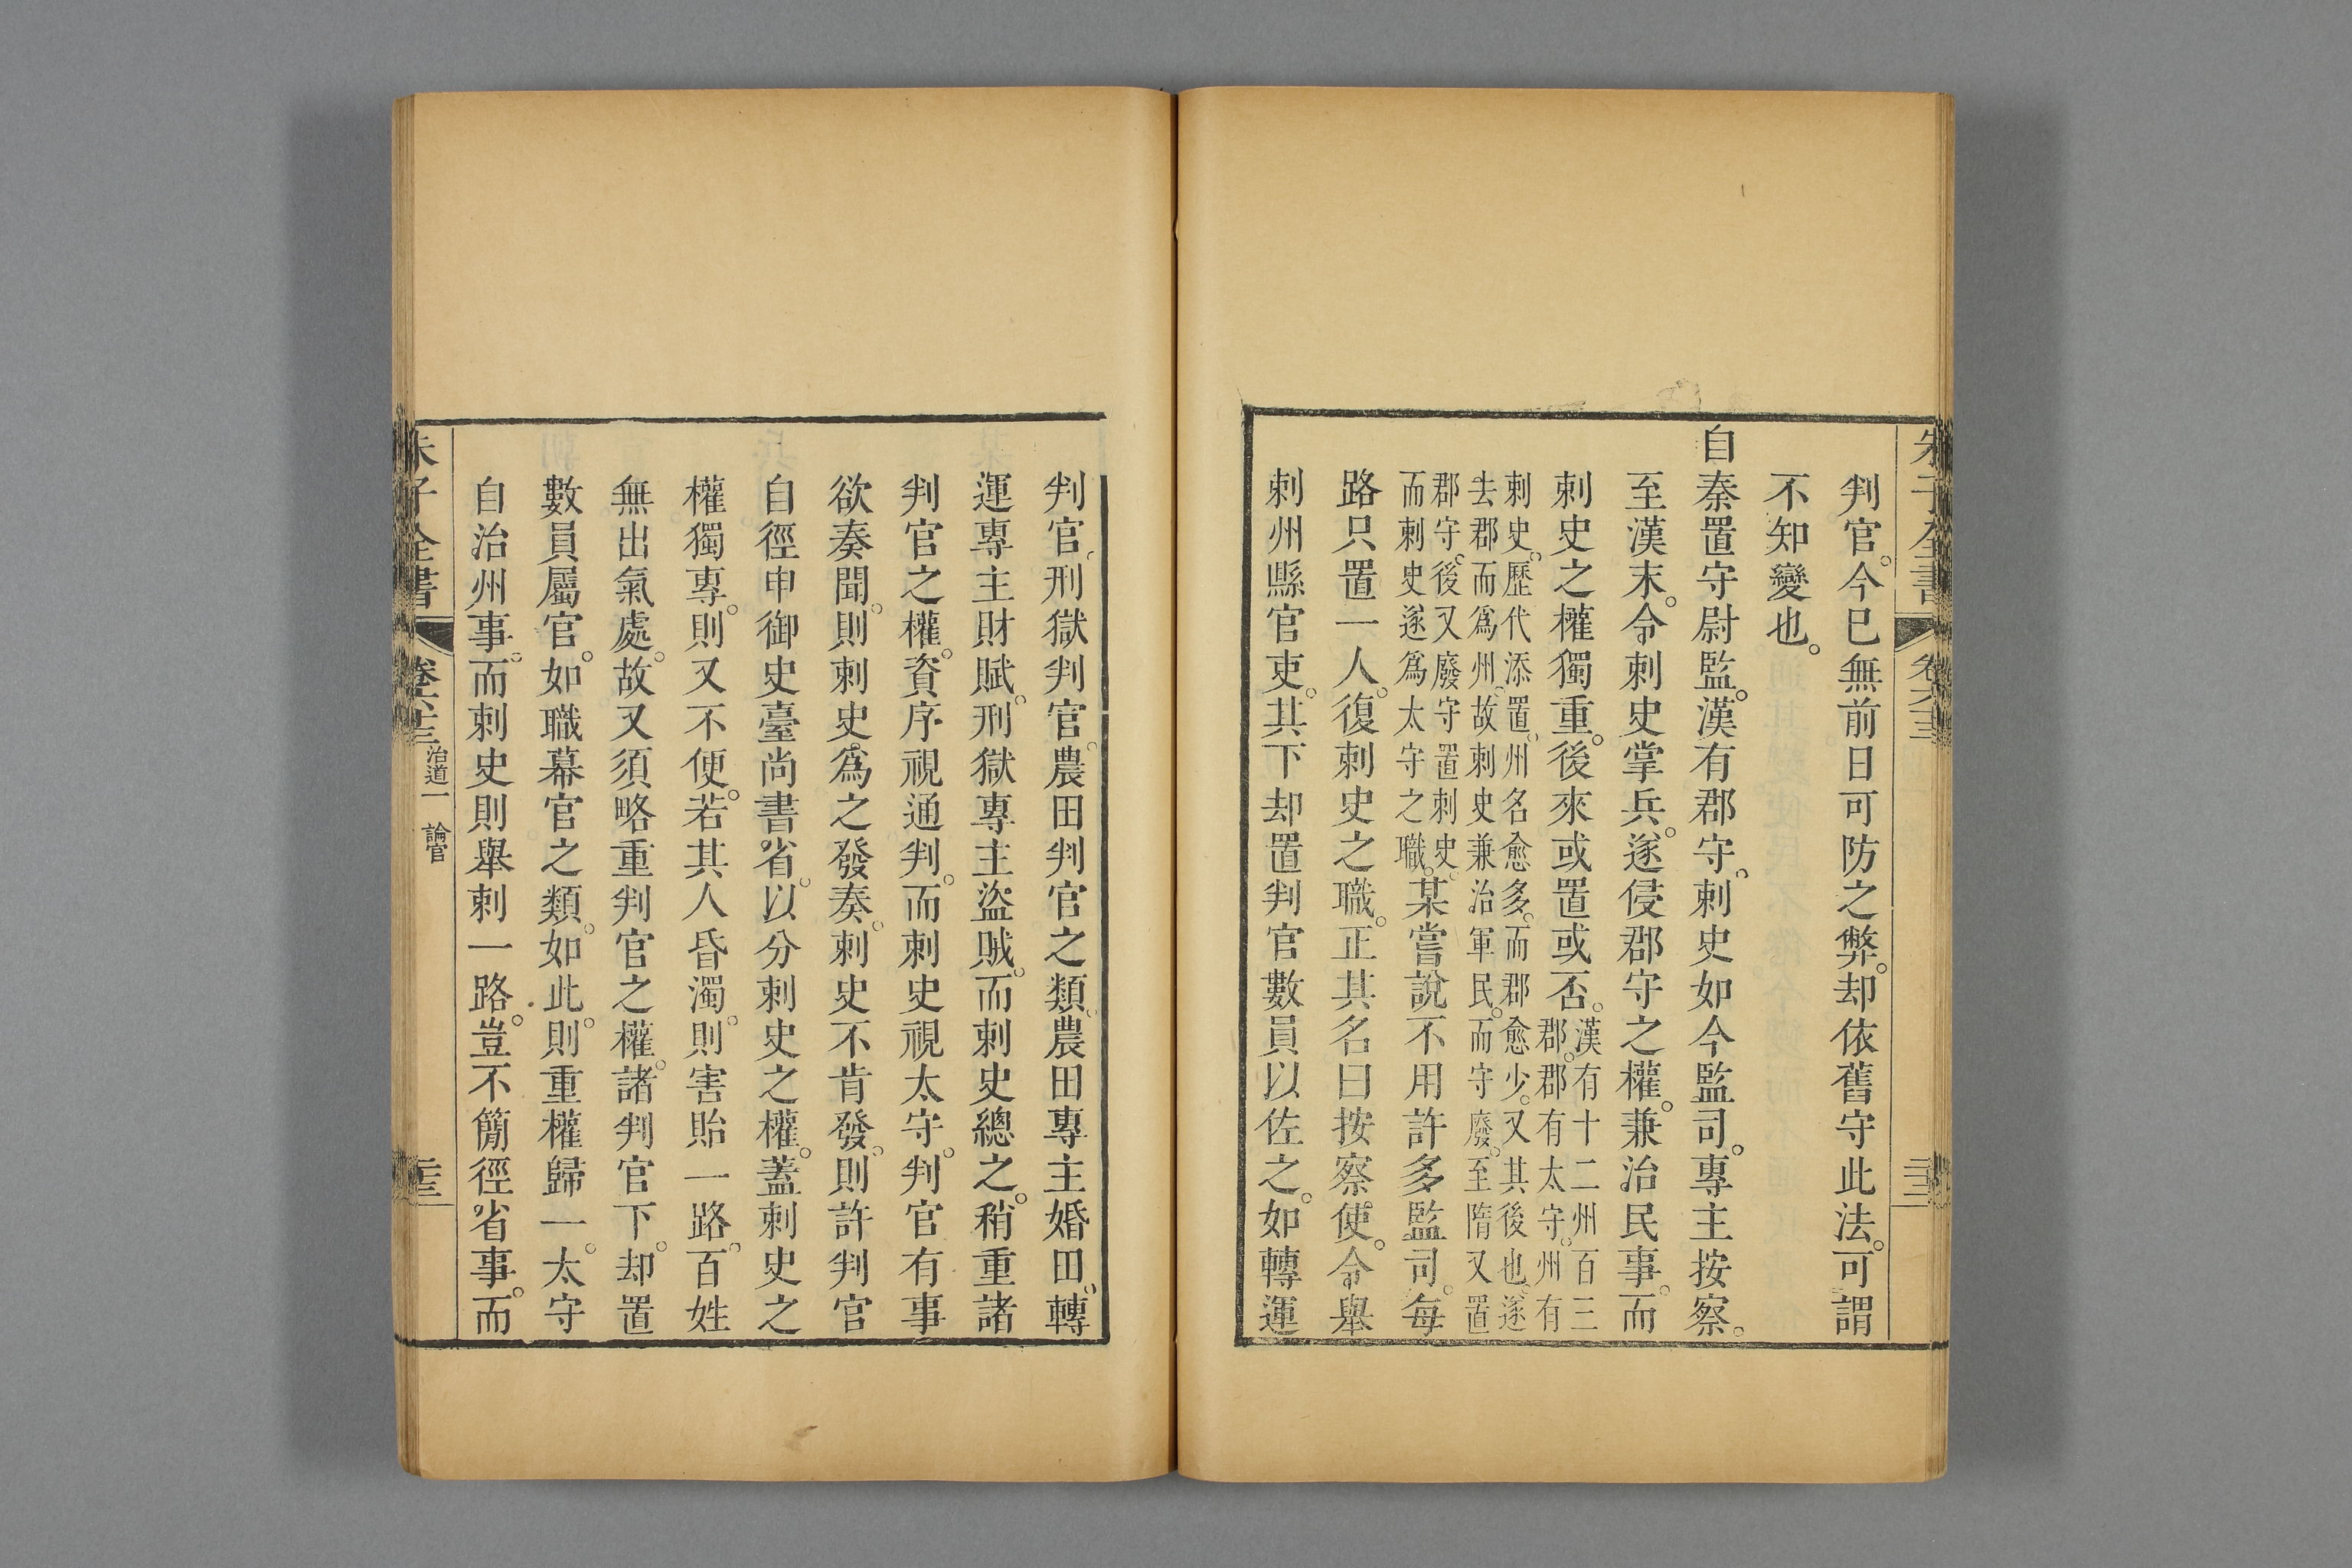 朱子全書
卷六十三
判官。今已無前日可防之弊。却依舊守此法。可謂
不知變也。
自秦置守尉監。漢有郡守。刺史如今監司。專主按察。
至漢末。令刺史掌兵。遂侵郡守之權。兼治民事。而
刺史之權獨重。後來或置或否。
漢有十二州百三
郡。郡有太守。州有
刺史。歷代添置。州名愈多。而郡愈少。又其後也。遂
去郡而爲州。故刺史兼治軍民。而守廢。至隋又置
郡守。後又廢守置刺史。
而刺史遂爲太守之職。
某嘗說不用許多監司。每
路只置一人。復刺史之職。正其名曰按察使。令舉
刺州縣官吏。其下却置判官數員以佐之。如轉運
判官。刑獄判官。農田判官之類。農田專主婚田。轉
運專主財賦。刑獄專主盜賊。而刺史總之。稍重諸
判官之權。資序視通判。而刺史視太守。判官有事
欲奏聞。則刺史爲之發奏。刺史不肯發。則許判官
自徑申御史臺尚書省。以分刺史之權。蓋刺史之
權獨專。則又不便。若其人昏濁。則害貽一路。百姓
無出氣處。故又須略重判官之權。諸判官下。却置
數員屬官。如職幕官之類。如此。則重權歸一。太守
自治州事。而刺史則舉刺一路。豈不簡徑省事。而
朱子全書
卷六十三
治道一
論官
二十三